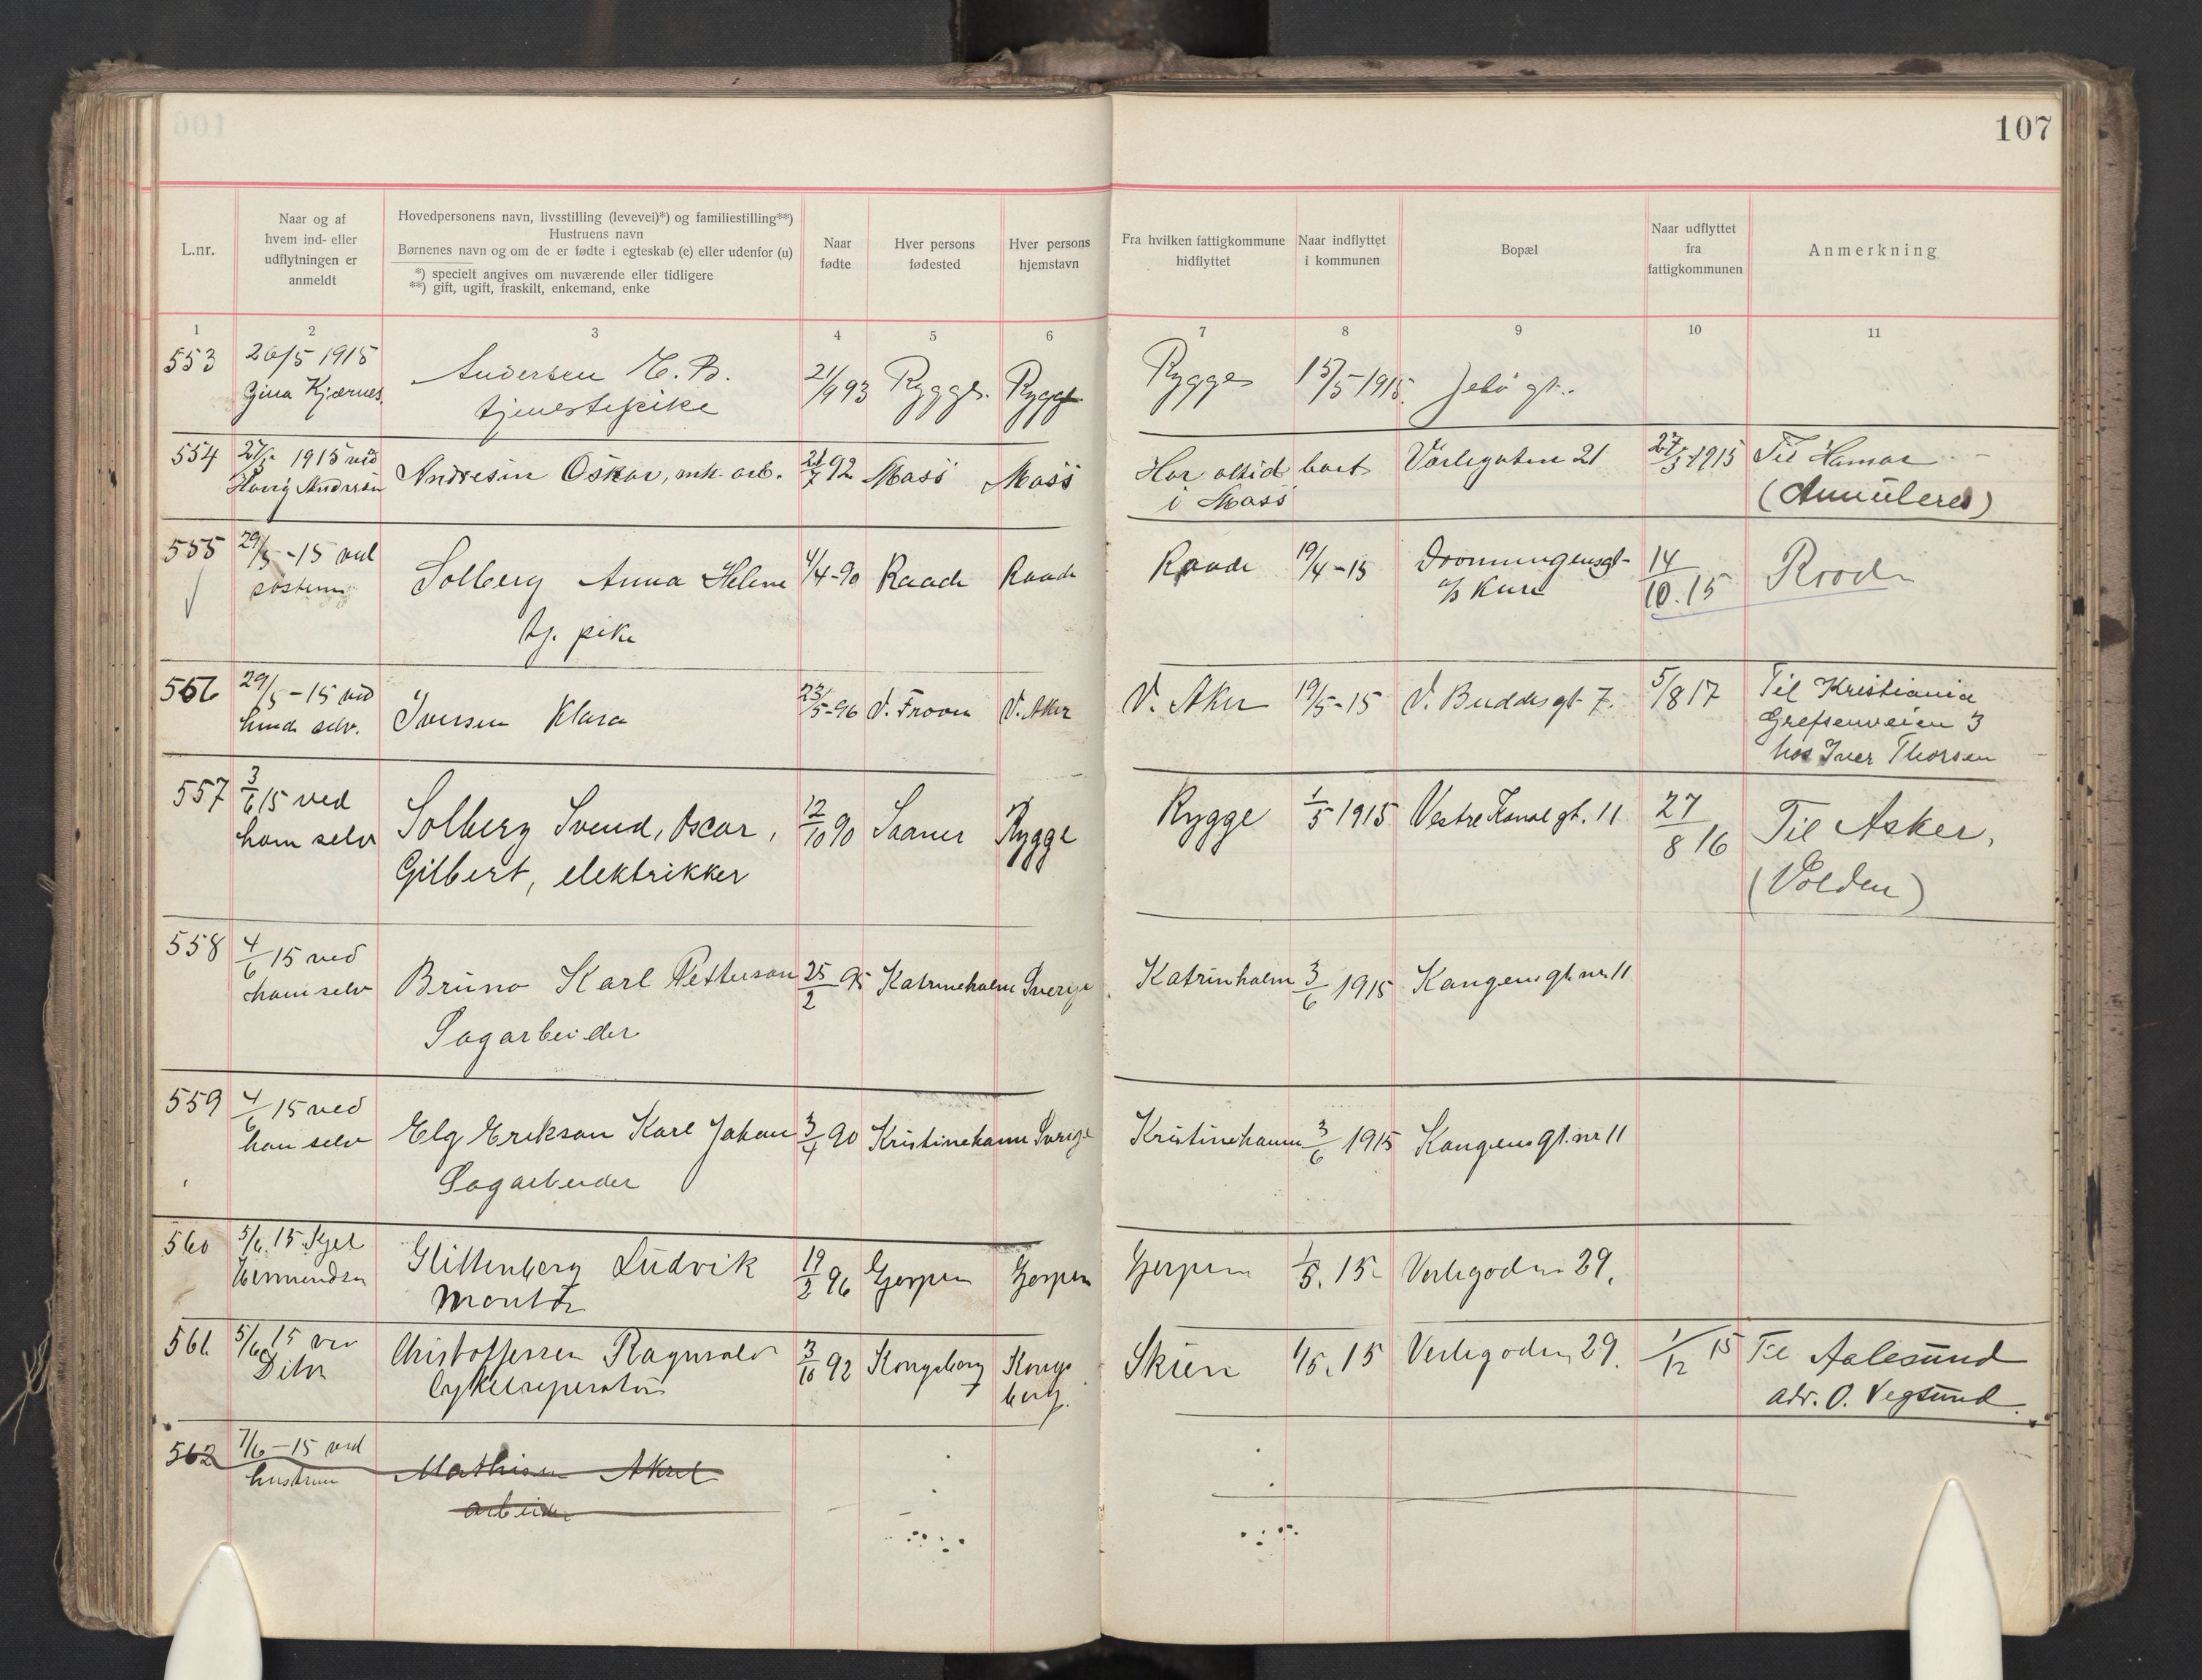 107
L.nr.
Naar og af
hvem ind- eller
udflytningen er
anmeldt
Hovedpersonens navn, livsstilling (levevei)*) og familiestilling**)
Hustruens navn
Børnenes navn og om de er fødte i egteskab (e) eller udenfor (u)
*) specielt angives om nuværende eller tidligere
**) gift, ugift, fraskilt, enkemand, enke
Naar
fødte
Hver persons
fødested
Hver persons
hjemstavn
Fra hvilken fattigkommune
hidflyttet
Naar indflyttet
i kommunen
Bopæl
Naar udflyttet
fra
fattigkommunen
Anmerkning
1 2 3 4 5 6 7 8 9 10 11
553 26/5 1915 Andersen B. 21/9 93 Rygge. Rygge Rygge 15/5-1915. Jelø gt.
Gina Kjærnes. tjenestepike
554 1915 ved Andresen Oskar, mk. arb. 92 Moss Moss Har altid boet Værlegaten 21 1915 Til Hamar
Andersen i Moss (Annuleres)
555 29/5-15 ved Solberg Anna Helene 4/4-90 Raade Raade Raade 19/4-15 Dronningensgt- 14/10.15 Raade
tj. pike
556 29/5-15 ved Iversen Klara 23/5-96 V. Aker V. Aker 19/5-15 V. Buddesgt 7. 5/8 17 Til Kristiania
hende selv. Grefsenveien 3
hos Iver Thorsen
557 3/6 15 ved Solberg Svend, Oscar, 12/10 90 Saaner Rygge Rygge 1/5 1915 Vestre Kanalgt. 11 27/8 16 Til Asker,
ham selv Gilbert, elektrikker (Volden)
558 4/6 15 ved Bruno Karl Petterson 25/2 95 Katrineholm Sverige Katrinholm 3/6 1915 Kongensgt. nr 11
ham selv Sagarbeider
559 4/6 15 ved Elg Erikson Karl Johan 3/4 90 Kristinehamn Sverige Kristinehamn 3/6 1915 Kongensgt. nr 11
han selv Sagarbeider
560 5/6. 15 Ludvik 19/2 96 Gjerpen Gjerpen Gjerpen 1/5. 15 29.
Montør
561. 5/6 15 ved Christoffersen Ragnvald 3/10 92 Kongsberg Kongs Skien 1/5. 15 29. 1/12 15 Til Aalesund
Dito Cykelreperatør berg. adr. O. Vegsund.
562 7/6-15 ved Mathisen Aksel
hustruen arbeider